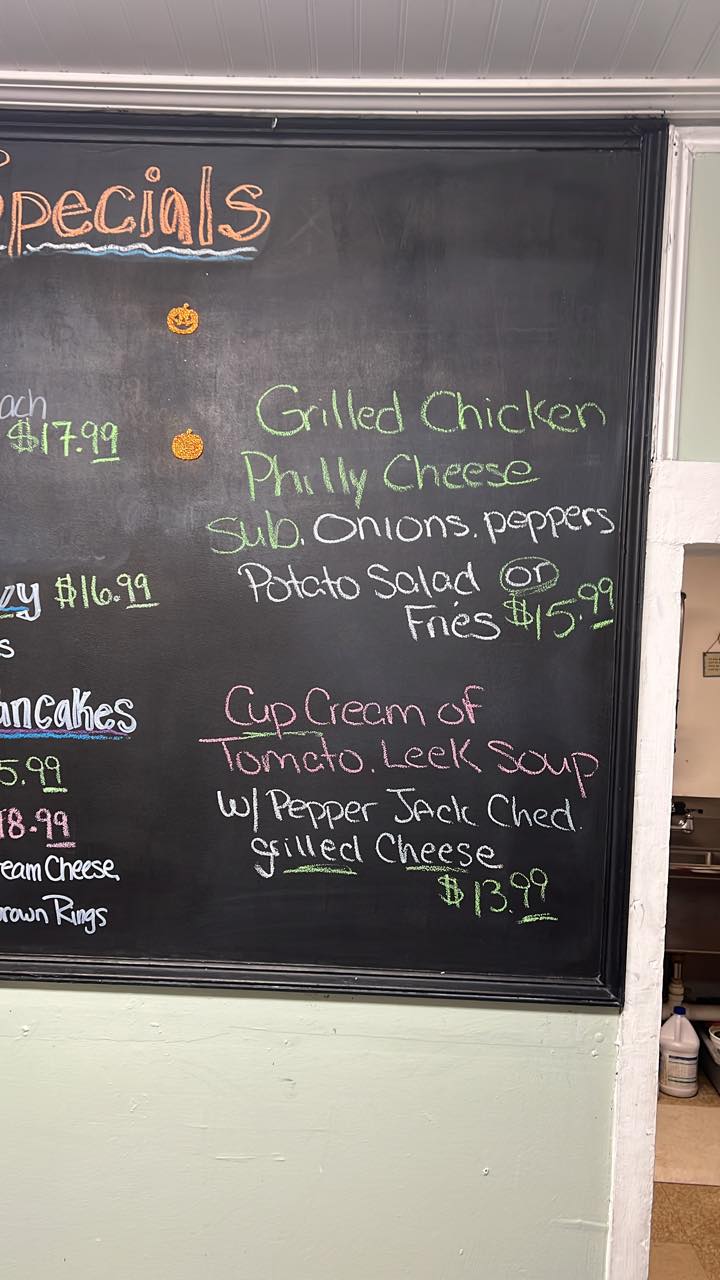 Specials
$17.99
Grilled Chicken
Philly Cheese
Sub. Onions. peppers
Potato Salad or
Fries $15.99
$16.99
Pancakes
5.99
18.99
Cream Cheese
Brown Rings
Cup Cream of
Tomato. Leek Soup
w/ Pepper Jack Ched.
grilled Cheese
$13.99